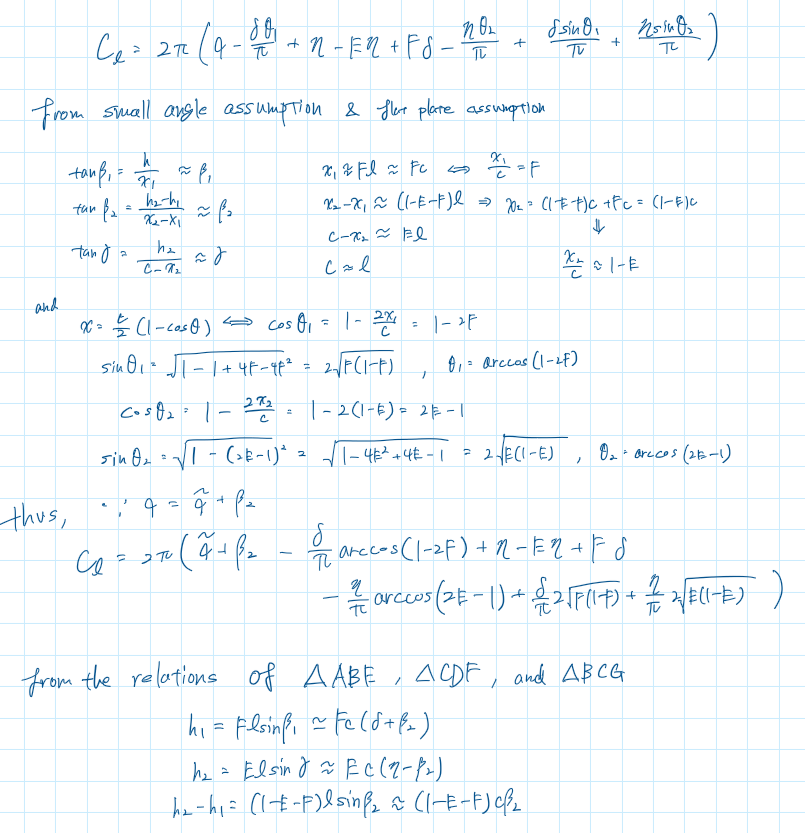 Cℓ = 2π ( α - δθ₁/π + η - Eη + Fδ - ηθ₂/π + δsinθ₁/π + ηsinθ₂/π )
from small angle assumption & flat plate assumption
tanβ₁ = h/x₁ ≈ β₁    x₁ ≈ Fl ≈ Fc ⟺ x₁/c = F
tanβ₂ = (h₂-h₁)/(x₂-x₁) ≈ β₂    x₂-x₁ ≈ (1-E-F)l ⇒ x₂ = (1-E-F)c + Fc = (1-E)c
tanγ = h₂/(c-x₂) ≈ γ    c-x₂ ≈ El    ⇓
c ≈ l    x₂/c ≈ 1-E
and
x = c/2 (1-cosθ) ⟺ cosθ₁ = 1 - 2x₁/c = 1-2F
sinθ₁ = √(1-1+4F-4F²) = 2√(F(1-F)) , θ₁ = arccos(1-2F)
cosθ₂ = 1 - 2x₂/c = 1-2(1-E) = 2E-1
sinθ₂ = √(1-(2E-1)²) = √(1-4E²+4E-1) = 2√(E(1-E)) , θ₂ = arccos(2E-1)
thus, ∵ α = α̃ + β₂
Cℓ = 2π ( α̃ + β₂ - δ/π arccos(1-2F) + η - Eη + Fδ
- η/π arccos(2E-1) + δ/π 2√(F(1-F)) + η/π 2√(E(1-E)) )
from the relations of △ABE , △CDF , and △BCG
h₁ = Flsinβ₁ ≃ Fc(δ+β₂)
h₂ = Elsinγ ≈ Ec(η-β₂)
h₂-h₁ = (1-E-F)lsinβ₂ ≈ (1-E-F)cβ₂